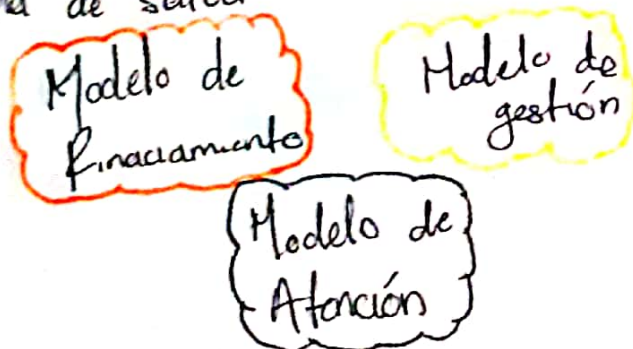 de salud
Modelo de
finaciamiento
Modelo de
gestión
Modelo de
Atención